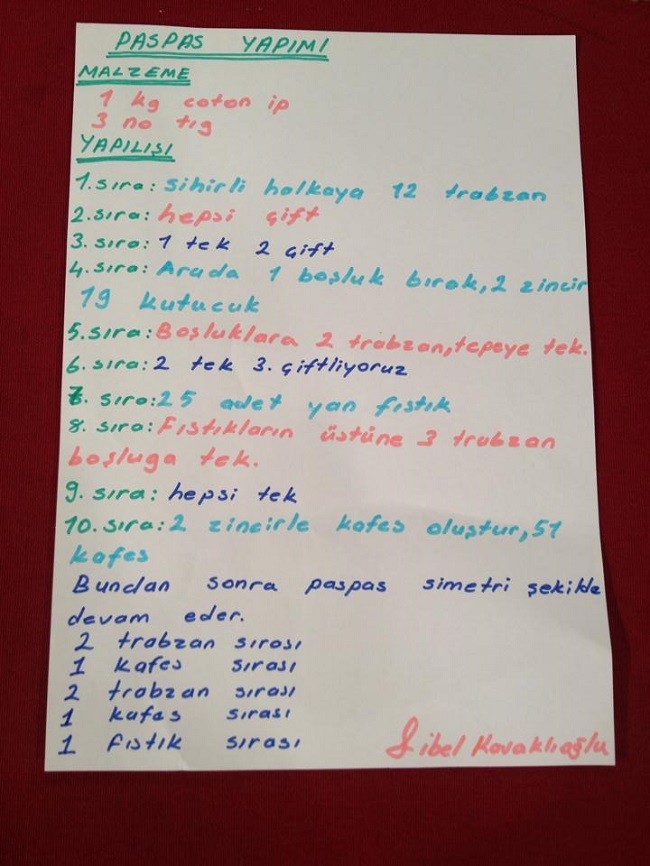 PASPAS YAPIMI
MALZEME
1 kg coton ip
3 no tıg
YAPILIŞI
1.sıra: sihirli halkaya 12 trabzan
2.sıra: hepsi çift
3. sıra: 1 tek 2 çift
4. sıra: Arada 1 boşluk bırak, 2 zincir
19 kutucuk
5.sıra: Boşluklara 2 trabzan, tepeye tek.
6. sıra: 2 tek 3. çiftliyoruz
7. sıra: 25 adet yan fıstık
8. sıra: Fıstıkların üstüne 3 trabzan
boşluga tek.
9. sıra: hepsi tek
10. sıra: 2 zincirle kafes oluştur, 51
kafes
Bundan sonra paspas simetri şekilde
devam eder.
2 trabzan sırası
1 kafes sırası
2 trabzan sırası
1 kafes sırası
1 fıstık sırası
Sibel Kavaklıoğlu